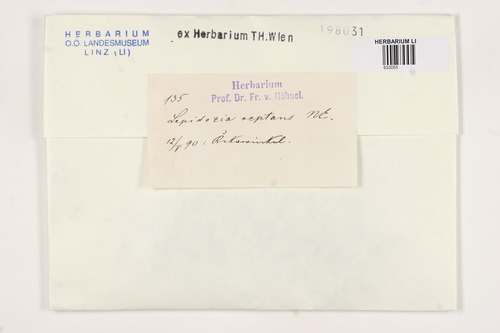 HERBARIUM
O.Ö. LANDESMUSEUM
LINZ (LI)
ex Herbarium TH.Wien
198031
HERBARIUM LI
Herbarium
Prof. Dr. Fr. v. Höhnel.
135
Lepidozia reptans NE.
12/V 90: Rekawinkel.